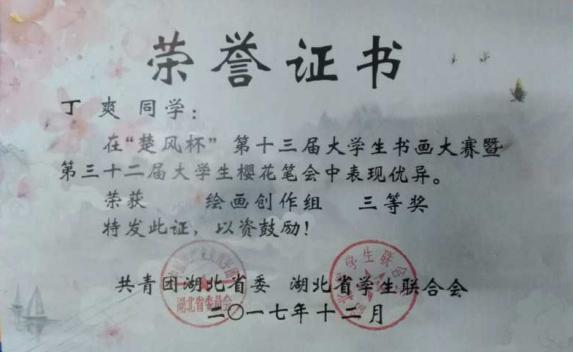 荣誉证书
丁爽同学：
在“楚风杯”第十三届大学生书画大赛暨
第三十二届大学生樱花笔会中表现优异。
荣获 绘画创作组 三等奖
特发此证，以资鼓励！
共青团湖北省委 湖北省学生联合会
二〇一七年十二月
湖北省委员会
学生联合